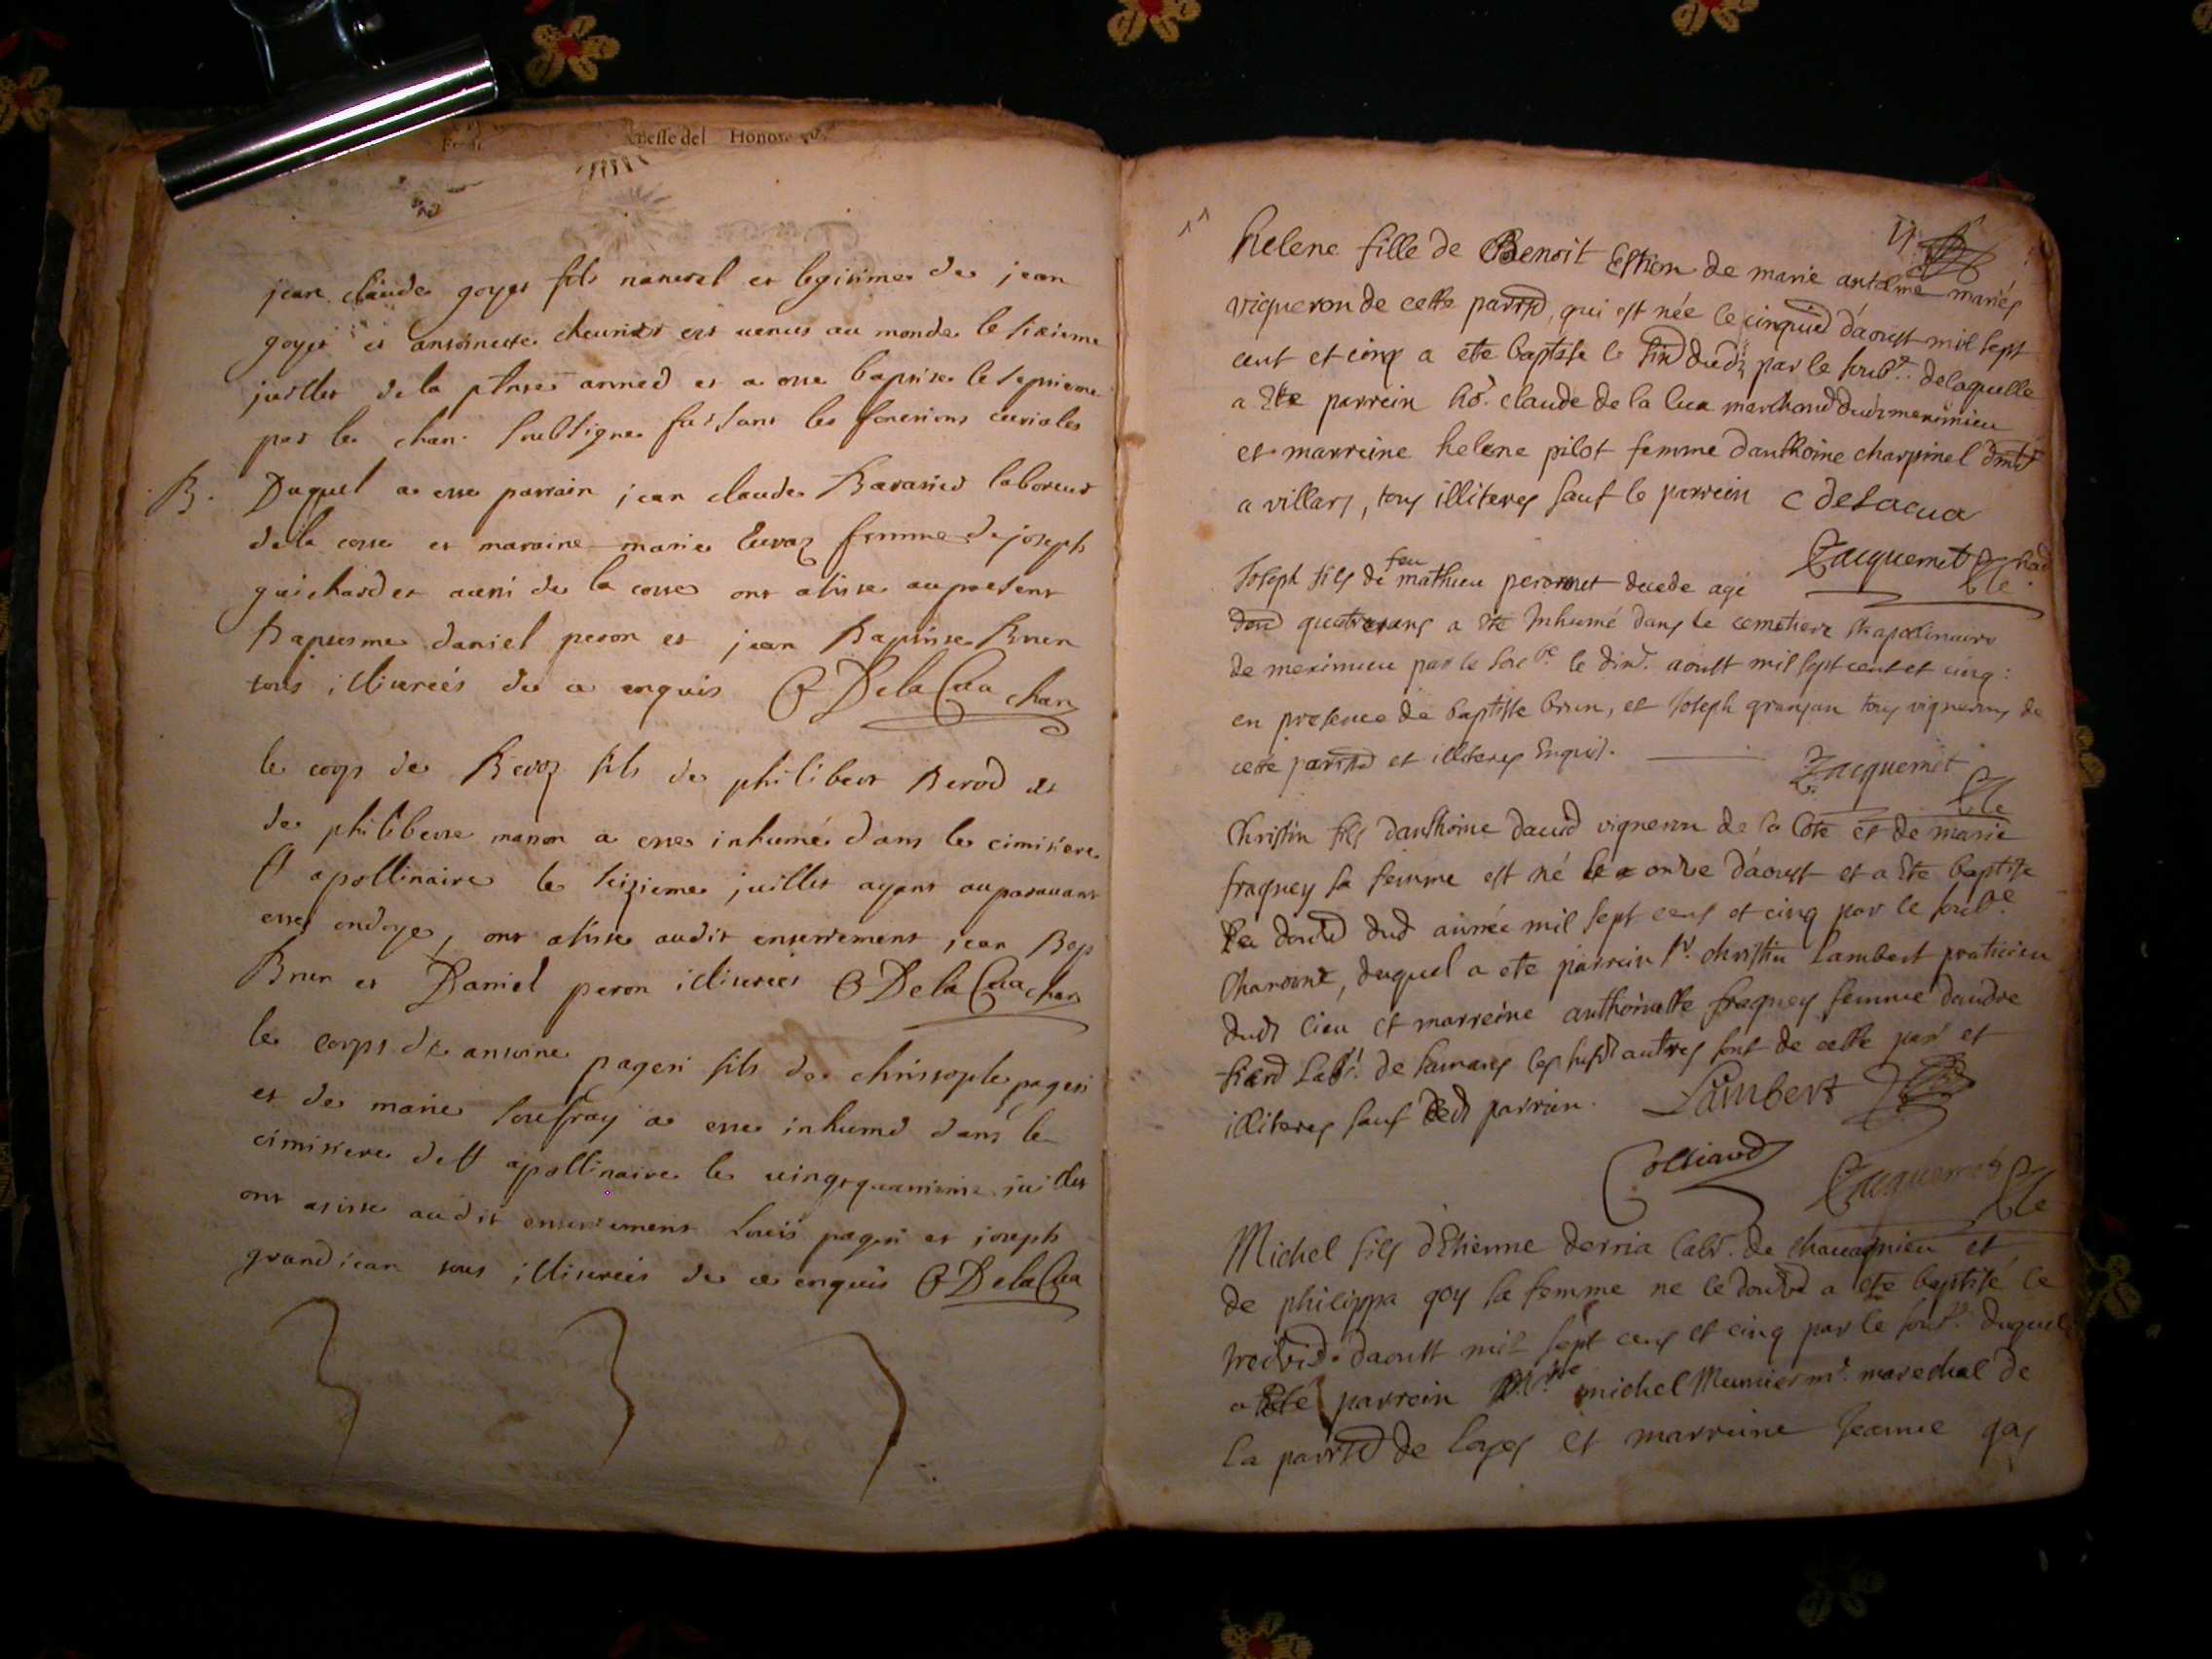 nesse del Honore
jean claude goyet fils naturel et legitime de jean
goyet et antoinette cheurier est venus au monde le sixieme
juillet de la pnte anneé et a esté baptisé le septieme
par le chan. soubsigné faisant les fonctions curiales
B. Duquel a esté parrain jean claude Baratier laboreur
de la coste et maraine marie Euvraz femme de joseph
guichard et aussi de la coste ont assisté au present
Baptesme daniel peron et jean Baptiste Brun
tous illiterés de ce enquis C De la Cua chan
le corps de Beroz fils de philibert Berod et
de philiberte manon a esté inhumé dans le cimitiere
St apollinaire le seizieme juillet ayant auparauant
esté ondoyé, ont assisté audit enterrement jean Bap
Brun et Daniel peron illiterés C De la Cua chan
le corps de antoine pageri fils de christople pageri
et de marie soufray a esté inhumé dans le
cimitiere de St apollinaire le uingtquatrieme juillet
ont assisté audit enterrement Louis pageri et joseph
grandjean tous illiterés de ce enquis C De la Cua
helene fille de Benoit Estien de marie antelme mariés
vigneron de cette parrse, qui est née le cinquie d'aoust mil sept
cent et cinq a ete baptise le sixe dudt par le soubt. de laquelle
a ete parrein ho. claude de la Cua marchand dudt meximieu
et marreine helene pilot femme d'anthoine charpinel
a villars, tous illiteres sauf le parrein C DeLacua
Jacquemet
Joseph fils de feu mathieu peronnet decede agé
quatre ans a ete Inhumé dans le cemetiere St apolinaire
de meximieu par le soubt le dixe. aoust mil sept cent et cinq :
en presence de baptiste brun, et Joseph granjan tous vignerons de
cette parrse et illiteres Enquis.
Jacquemet
Christin fils d'anthoine dauid vigneron de la Cote et de marie
fragney sa femme est né le onze d'aoust et a ete baptise
le douze dud année mil sept cens et cinq par le soubt
Chanoine, duquel a ete parrein sr. christin Lambert praticien
dudt lieu et marreine anthoinette fragney femme d'andre
labr. de les susdt autres sont de cette par et
illiteres sauf ledt parrein. Lambert
Colliard Jacquemet
Michel fils d'Etienne derria labr. de chauagnieu et
de philippa goy sa femme ne le douze a ete baptisé le
treize d'aoust mil sept cens et cinq par le soubt. duquel
a eté parrein michel Meunier mr. marechal de
la parrse de loyes et marreine Jeanne goy